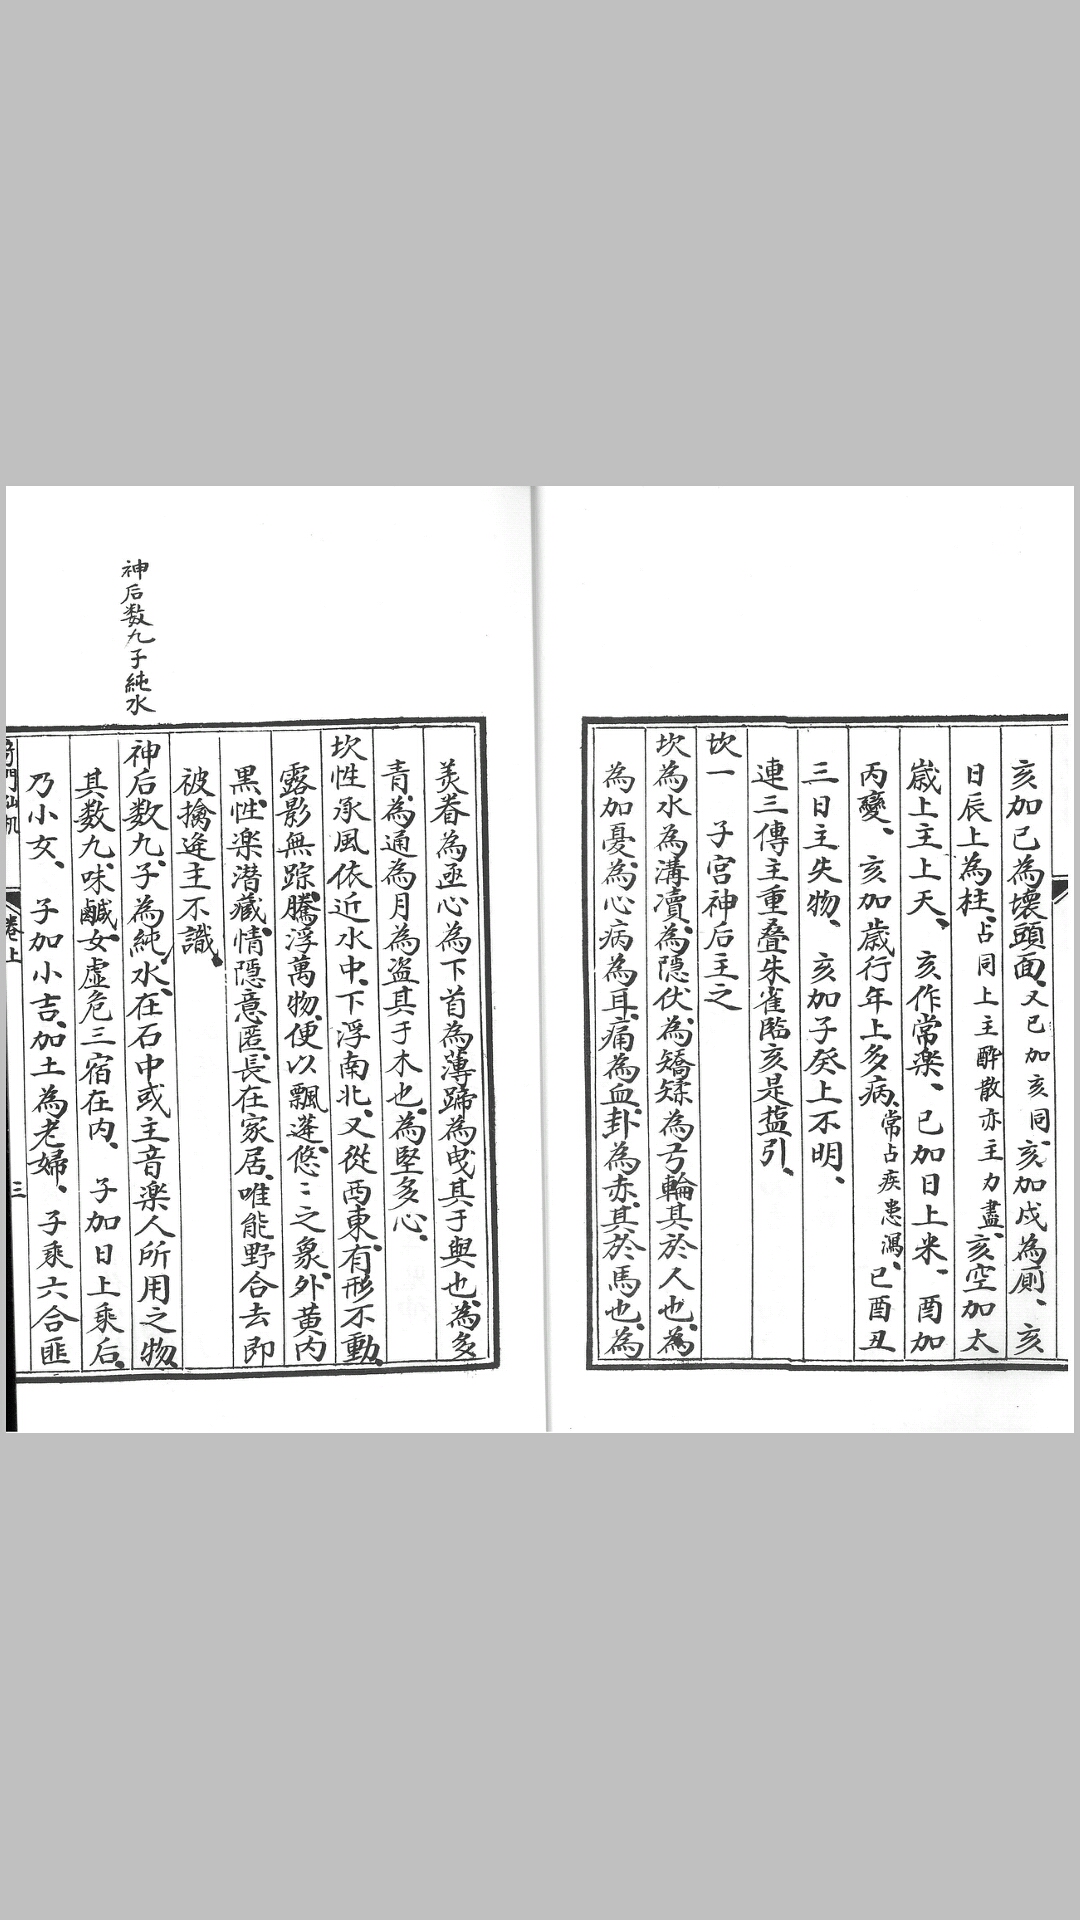 亥加已為壞頭面、又已加亥同、亥加戍為厠、亥
日辰上為柱、占同上主醉散亦主力盡、亥空加太
歲上主上天、亥作常楽、已加日上米、酉加
丙變、亥加歲行年上多病、常占疾患濁、已酉丑
三日主失物、亥加子癸上不明、
連三傳主重叠朱雀臨亥是盐引、
坎一 子宮神后主之
坎為水為溝瀆、為隠伏、為矯輮為弓輪其於人也、為
為加憂、為心病為耳痛為血卦、為赤、其於馬也、為
美脊為亟心為下首為薄蹄為曳其于輿也、為多
青、為通為月為盗其于木也、為堅多心、
坎性承風依近水中、下浮南北、又從西東、有形不動、
露影無踪、騰浮萬物、便以飄蓬、悠〻之象、外黄内
黑、性楽潜藏、情隠意匿、長在家居、唯能野合去即
被擒逄主不識、
神后数九子純水
神后数九、子為純水、在石中或主音楽人所用之物、
其数九、味鹹、女虚危三宿在内、子加日上乘后、
乃小女、子加小吉、加土為老婦、子乘六合匪
卷上
三